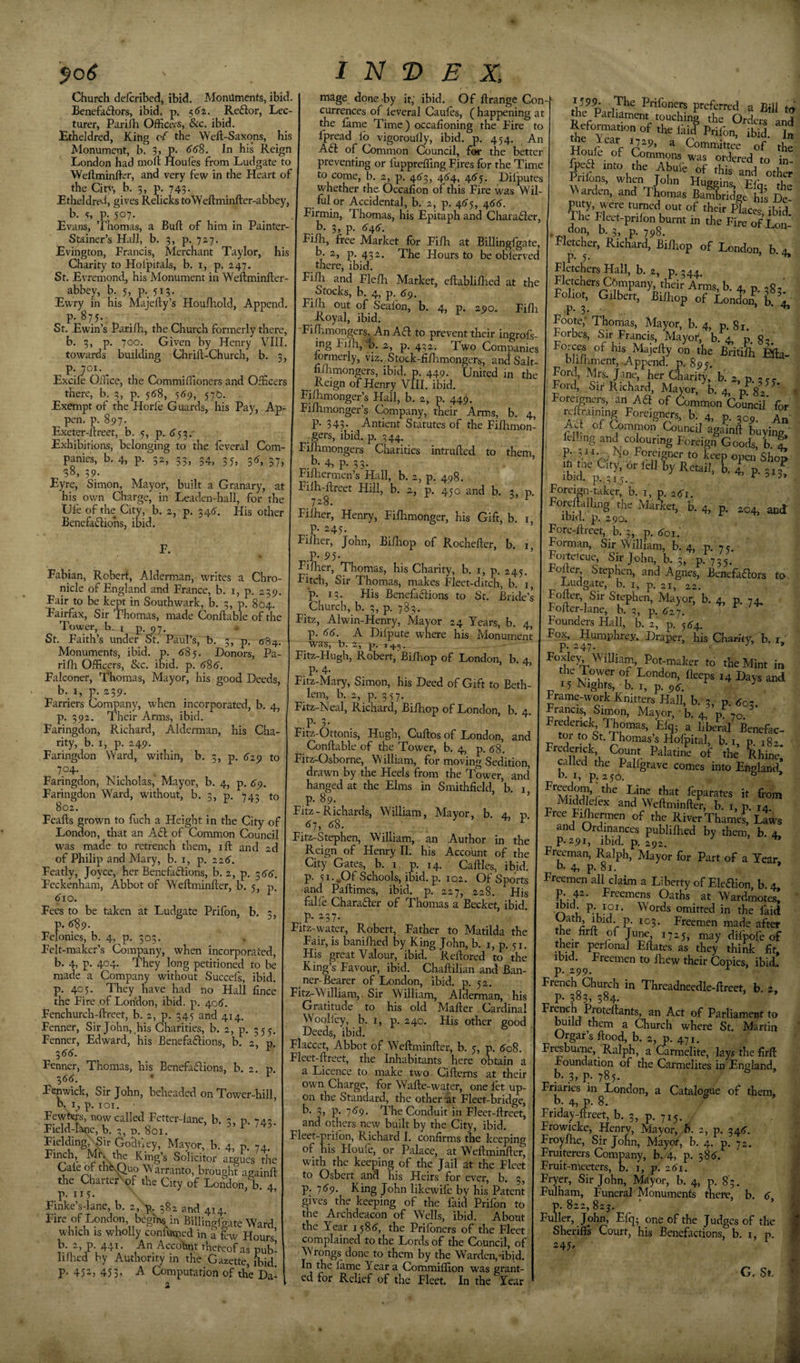 906
INDEX.
Church deſcribed, ibid. Monuments, ibid.
Benefactors, ibid. p. 562. Rector, Lec-
turer, Pariſh Officers, &c. ibid.
Etheldred, King of the Weſt-Saxons, his
Monument, b. 3, p. 668. In his Reign
London had moſt Houſes from Ludgate to
Weſtminſter, and very few in the Heart of
the City, b. 3, p. 743.
Etheldred, gives Relicks to Weſtminſter-abbey,
b. 5, p. 507.
Evans, Thomas, a Buſt of him in Painter-
Stainer's Hall, b. 3, p. 727.
Evington, Francis, Merchant Taylor, his
Charity to Hoſpitals, b. 1, p. 247.
St. Evremond, his Monument in Weſtminſter-
abbey, b. 5, p. 513.
Ewry in his Majeſty's Houſhold, Append.
p. 875.
St. Ewin's Pariſh, the Church formerly there,
b. 3, p. 700. Given by Henry VIII.
towards building Chriſt-Church, b. 3,
p. 701.
Exciſe Office, the Commiſſioners and Officers
there, b. 3, p. 568, 569, 570.
Exempt of the Horſe Guards, his Pay, Ap-
pen. p. 897.
Exeter-ſtreet, b. 5, p. 653.
Exhibitions, belonging to the ſeveral Com-
panies, b. 4, p. 32, 33, 34, 35, 36, 37,
38, 39.
Eyre, Simon, Mayor, built a Granary, at
his own Charge, in Leaden-hall, for the
Uſe of the City, b. 2, p. 346. His other
Benefactions, ibid.
F.
Fabian, Robert, Alderman, writes a Chro-
nicle of England and France, b. 1, p. 239.
Fair to be kept in Southwark, b. 3, p. 804.
Fairfax, Sir Thomas, made Conſtable of the
Tower, b. 1 p. 97.
St. Faith's under St. Paul's, b. 3, p. 684.
Monuments, ibid. p. 685. Donors, Pa-
riſh Officers, &c. ibid. p. 686.
Falconer, Thomas, Mayor, his good Deeds,
b. 1, p. 239.
Farriers Company, when incorporated, b. 4,
p. 392. Their Arms, ibid.
Faringdon, Richard, Alderman, his Cha-
rity, b. 1, p. 249.
Faringdon Ward, within, b. 3, p. 629 to
704.
Faringdon, Nicholas, Mayor, b. 4, p. 69.
Faringdon Ward, without, b. 3, p. 743 to
802.
Feaſts grown to ſuch a Height in the City of
London, that an Act of Common Council
was made to retrench them, 1ſt and 2d
of Philip and Mary, b. 1, p. 226.
Featly, Joyce, her Benefactions, b. 2, p. 366.
Feckenham, Abbot of Weſtminſter, b. 5, p.
610.
Fees to be taken at Ludgate Priſon, b. 3,
p. 689.
Felonies, b. 4, p. 303.
Felt-maker's Company, when incorporated,
b. 4, p. 404. They long petitioned to be
made a Company without Succeſs, ibid.
p. 405. They have had no Hall ſince
the Fire of London, ibid. p. 406.
Fenchurch-ſtreet, b. 2, p. 345 and 414.
Fenner, Sir John, his Charities, b. 2, p. 355.
Fenner, Edward, his Benefactions, b. 2, p.
366.
Fenner, Thomas, his Benefactions, b. 2. p.
366.
Fenwick, Sir John, beheaded on Tower-hill,
b. 1, p. 101.
Fewters, now called Fetter-lane, b. 3, p. 743.
Field-lane, b. 3, p. 801.
Fielding, Sir Godfrey, Mayor, b. 4, p. 74.
Finch, Mr. the King's Solicitor argues the
Caſe of the Quo Warranto, brought againſt
the Charter of the City of London, b. 4,
p. 115.
Finke's-lane, b. 2, p. 382 and 414.
Fire of London, begins in Billingſgate Ward,
which is wholly conſumed in a few Hours,
b. 2, p. 441. An Account thereof as pub-
liſhed by Authority in the Gazette, ibid.
p. 452, 453. A Computation of the Da-
2
mage done by it, ibid. Of ſtrange Con-
currences of ſeveral Cauſes, (happening at
the ſame Time) occaſioning the Fire to
ſpread ſo vigorouſly, ibid. p. 454. An
Act of Common Council, for the better
preventing or ſuppreſſing Fires for the Time
to come, b. 2, p. 463, 464, 465. Diſputes
whether the Occaſion of this Fire was Wil-
ful or Accidental, b. 2, p. 465, 466.
Firmin, Thomas, his Epitaph and Character,
b. 3, p. 646.
Fiſh, free Market for Fiſh at Billingſgate,
b. 2, p. 432. The Hours to be obſerved
there, ibid.
Fiſh and Fleſh Market, eſtabliſhed at the
Stocks, b. 4, p. 69.
Fiſh out of Seaſon, b. 4, p. 290. Fiſh
Royal, ibid.
Fiſhmongers, An Act to prevent their ingroſs-
ing Fiſh, b. 2, p. 432. Two Companies
formerly, viz. Stock-fiſhmongers, and Salt-
fiſhmongers, ibid. p. 449. United in the
Reign of Henry VIII. ibid.
Fiſhmonger's Hall, b. 2, p. 449.
Fiſhmonger's Company, their Arms, b. 4,
p. 343. Antient Statutes of the Fiſhmon-
gers, ibid. p. 344.
Fiſhmongers Charities intruſted to them,
b. 4, p. 33.
Fiſhermen's Hall, b. 2, p. 498.
Fiſh-ſtreet Hill, b. 2, p. 450 and b. 3, p.
728.
Fiſher, Henry, Fiſhmonger, his Gift, b. 1,
p. 245.
Fiſher, John, Biſhop of Rocheſter, b. 1,
p. 95.
Fiſher, Thomas, his Charity, b. 1, p. 245.
Fitch, Sir Thomas, makes Fleet-ditch, b. 1,
p. 13. His Benefactions to St. Bride's
Church, b. 3, p. 783.
Fitz, Alwin-Henry, Mayor 24 Years, b. 4,
p. 66. A Diſpute where his Monument
was, b. 2, p. 143.
Fitz-Hugh, Robert, Biſhop of London, b. 4,
p. 4.
Fitz-Mary, Simon, his Deed of Gift to Beth-
lem, b. 2, p. 357.
Fitz-Neal, Richard, Biſhop of London, b. 4.
p. 3.
Fitz-Ottonis, Hugh, Cuſtos of London, and
Conſtable of the Tower, b. 4, p. 68.
Fitz-Osborne, William, for moving Sedition,
drawn by the Heels from the Tower, and
hanged at the Elms in Smithfield, b. 1,
p. 89.
Fitz-Richards, William, Mayor, b. 4, p.
67, 68.
Fitz-Stephen, William, an Author in the
Reign of Henry II. his Account of the
City Gates, b. 1. p. 14. Caſtles, ibid.
p. 51. Of Schools, ibid. p. 102. Of Sports
and Paſtimes, ibid. p. 227, 228. His
falſe Character of Thomas a Becket, ibid.
p. 237.
Fitz-water, Robert, Father to Matilda the
Fair, is baniſhed by King John, b. 1, p. 51.
His great Valour, ibid. Reſtored to the
King's Favour, ibid. Chaſtilian and Ban-
ner-Bearer of London, ibid. p. 52.
Fitz-William, Sir William, Alderman, his
Gratitude to his old Maſter Cardinal
Woolſey, b. 1, p. 240. His other good
Deeds, ibid.
Flaccet, Abbot of Weſtminſter, b. 5, p. 608.
Fleet-ſtreet, the Inhabitants here obtain a
a Licence to make two Ciſterns at their
own Charge, for Waſte-water, one ſet up-
on the Standard, the other at Fleet-bridge,
b. 3, p. 769. The Conduit in Fleet-ſtreet,
and others new built by the City, ibid.
Fleet-priſon, Richard I. confirms the keeping
of his Houſe, or Palace, at Weſtminſter,
with the keeping of the Jail at the Fleet
to Osbert and his Heirs for ever, b. 3,
p. 769. King John likewiſe by his Patent
gives the keeping of the ſaid Priſon to
the Archdeacon of Wells, ibid. About
the Year 1586, the Priſoners of the Fleet
complained to the Lords of the Council, of
Wrongs done to them by the Warden, ibid.
In the ſame Year a Commiſſion was grant-
ed for Relief of the Fleet. In the Year
1599. The Priſoners preferred a Bill to
the Parliament touching the Orders and
Reformation of the ſaid Priſon, ibid. In
the Year 1729, a Committee of the
Houſe of Commons was ordered to in-
ſpect into the Abuſe of this and other
Priſons, when John Huggins, Eſq; the
Warden, and Thomas Bambridge his De-
puty, were turned out of their Places, ibid.
The Fleet-priſon burnt in the Fire of Lon-
don, b. 3, p. 798.
Fletcher, Richard, Biſhop of London, b. 4,
p. 5.
Fletchers Hall, b. 2, p. 344.
Fletchers Company, their Arms, b. 4, p. 383.
Foliot, Gilbert, Biſhop of London, b. 4,
p. 3.
Foote, Thomas, Mayor, b. 4, p. 81.
Forbes, Sir Francis, Mayor, b. 4, p. 83.
Forces of his Majeſty on the Britiſh Eſta-
bliſhment, Append. p. 895.
Ford, Mrs. Jane, her Charity, b. 2, p. 355.
Ford, Sir Richard, Mayor, b. 4, p. 82.
Foreigners, an Act of Common Council for
reſtraining Foreigners, b. 4, p. 309. An
Act of Common Council againſt buying,
ſelling and colouring Foreign Goods, b. 4,
p. 311. No Foreigner to keep open Shop
in the City, or ſell by Retail, b. 4, p. 313,
ibid. p. 315.
Foreign-taker, b. 1, p. 261.
Foreſtalling the Market, b. 4, p. 204, and
ibid. p. 290.
Fore-ſtreet, b. 3, p. 601.
Forman, Sir William, b. 4, p. 75.
Forteſcue, Sir John, b. 3, p. 735.
Foſter, Stephen, and Agnes, Benefactors to
Ludgate, b. 1, p. 21, 22.
Foſter, Sir Stephen, Mayor, b. 4, p. 74.
Foſter-lane, b. 3, p. 627.
Founders Hall, b. 2, p. 564.
Fox, Humphrey, Draper, his Charity, b. 1,
p. 247.
Foxley, William, Pot-maker to the Mint in
the Tower of London, ſleeps 14 Days and
15 Nights, b. 1, p. 96.
Frame-work Knitters Hall, b. 3, p. 603.
Francis, Simon, Mayor, b. 4, p. 70.
Frederick, Thomas, Eſq; a liberal Benefac-
tor to St. Thomas's Hoſpital, b. 1, p. 182.
Frederick, Count Palatine of the Rhine,
called the Palſgrave comes into England,
b. 1, p. 256.
Freedom, the Line that ſeparates it from
Middleſex and Weſtminſter, b. 1, p. 14.
Free Fiſhermen of the River Thames, Laws
and Ordinances publiſhed by them, b. 4,
p. 291, ibid. p. 292.
Freeman, Ralph, Mayor for Part of a Year,
b. 4, p. 81.
Freemen all claim a Liberty of Election, b. 4,
p. 42. Freemens Oaths at Wardmotes,
ibid. p. 101. Words omitted in the ſaid
Oath, ibid. p. 103. Freemen made after
the firſt of June, 1725, may diſpoſe of
their perſonal Eſtates as they think fit,
ibid. Freemen to ſhew their Copies, ibid.
p. 299.
French Church in Threadneedle-ſtreet, b. 2,
p. 383, 384.
French Proteſtants, an Act of Parliament to
build them a Church where St. Martin
Orgar's ſtood, b. 2, p. 471.
Fresburne, Ralph, a Carmelite, lays the firſt
Foundation of the Carmelites in England,
b. 3, p. 785.
Friaries in London, a Catalogue of them,
b. 4, p. 8.
Friday-ſtreet, b. 3, p. 715.
Frowicke, Henry, Mayor, b. 2, p. 346.
Froyſhe, Sir John, Mayor, b. 4. p. 72.
Fruiterers Company, b. 4, p. 386.
Fruit-meeters, b. 1, p. 261.
Fryer, Sir John, Mayor, b. 4, p. 83.
Fulham, Funeral Monuments there, b. 6,
p. 822, 823.
Fuller, John, Eſq; one of the Judges of the
Sheriffs Court, his Benefactions, b. 1, p.
245.
G. St.